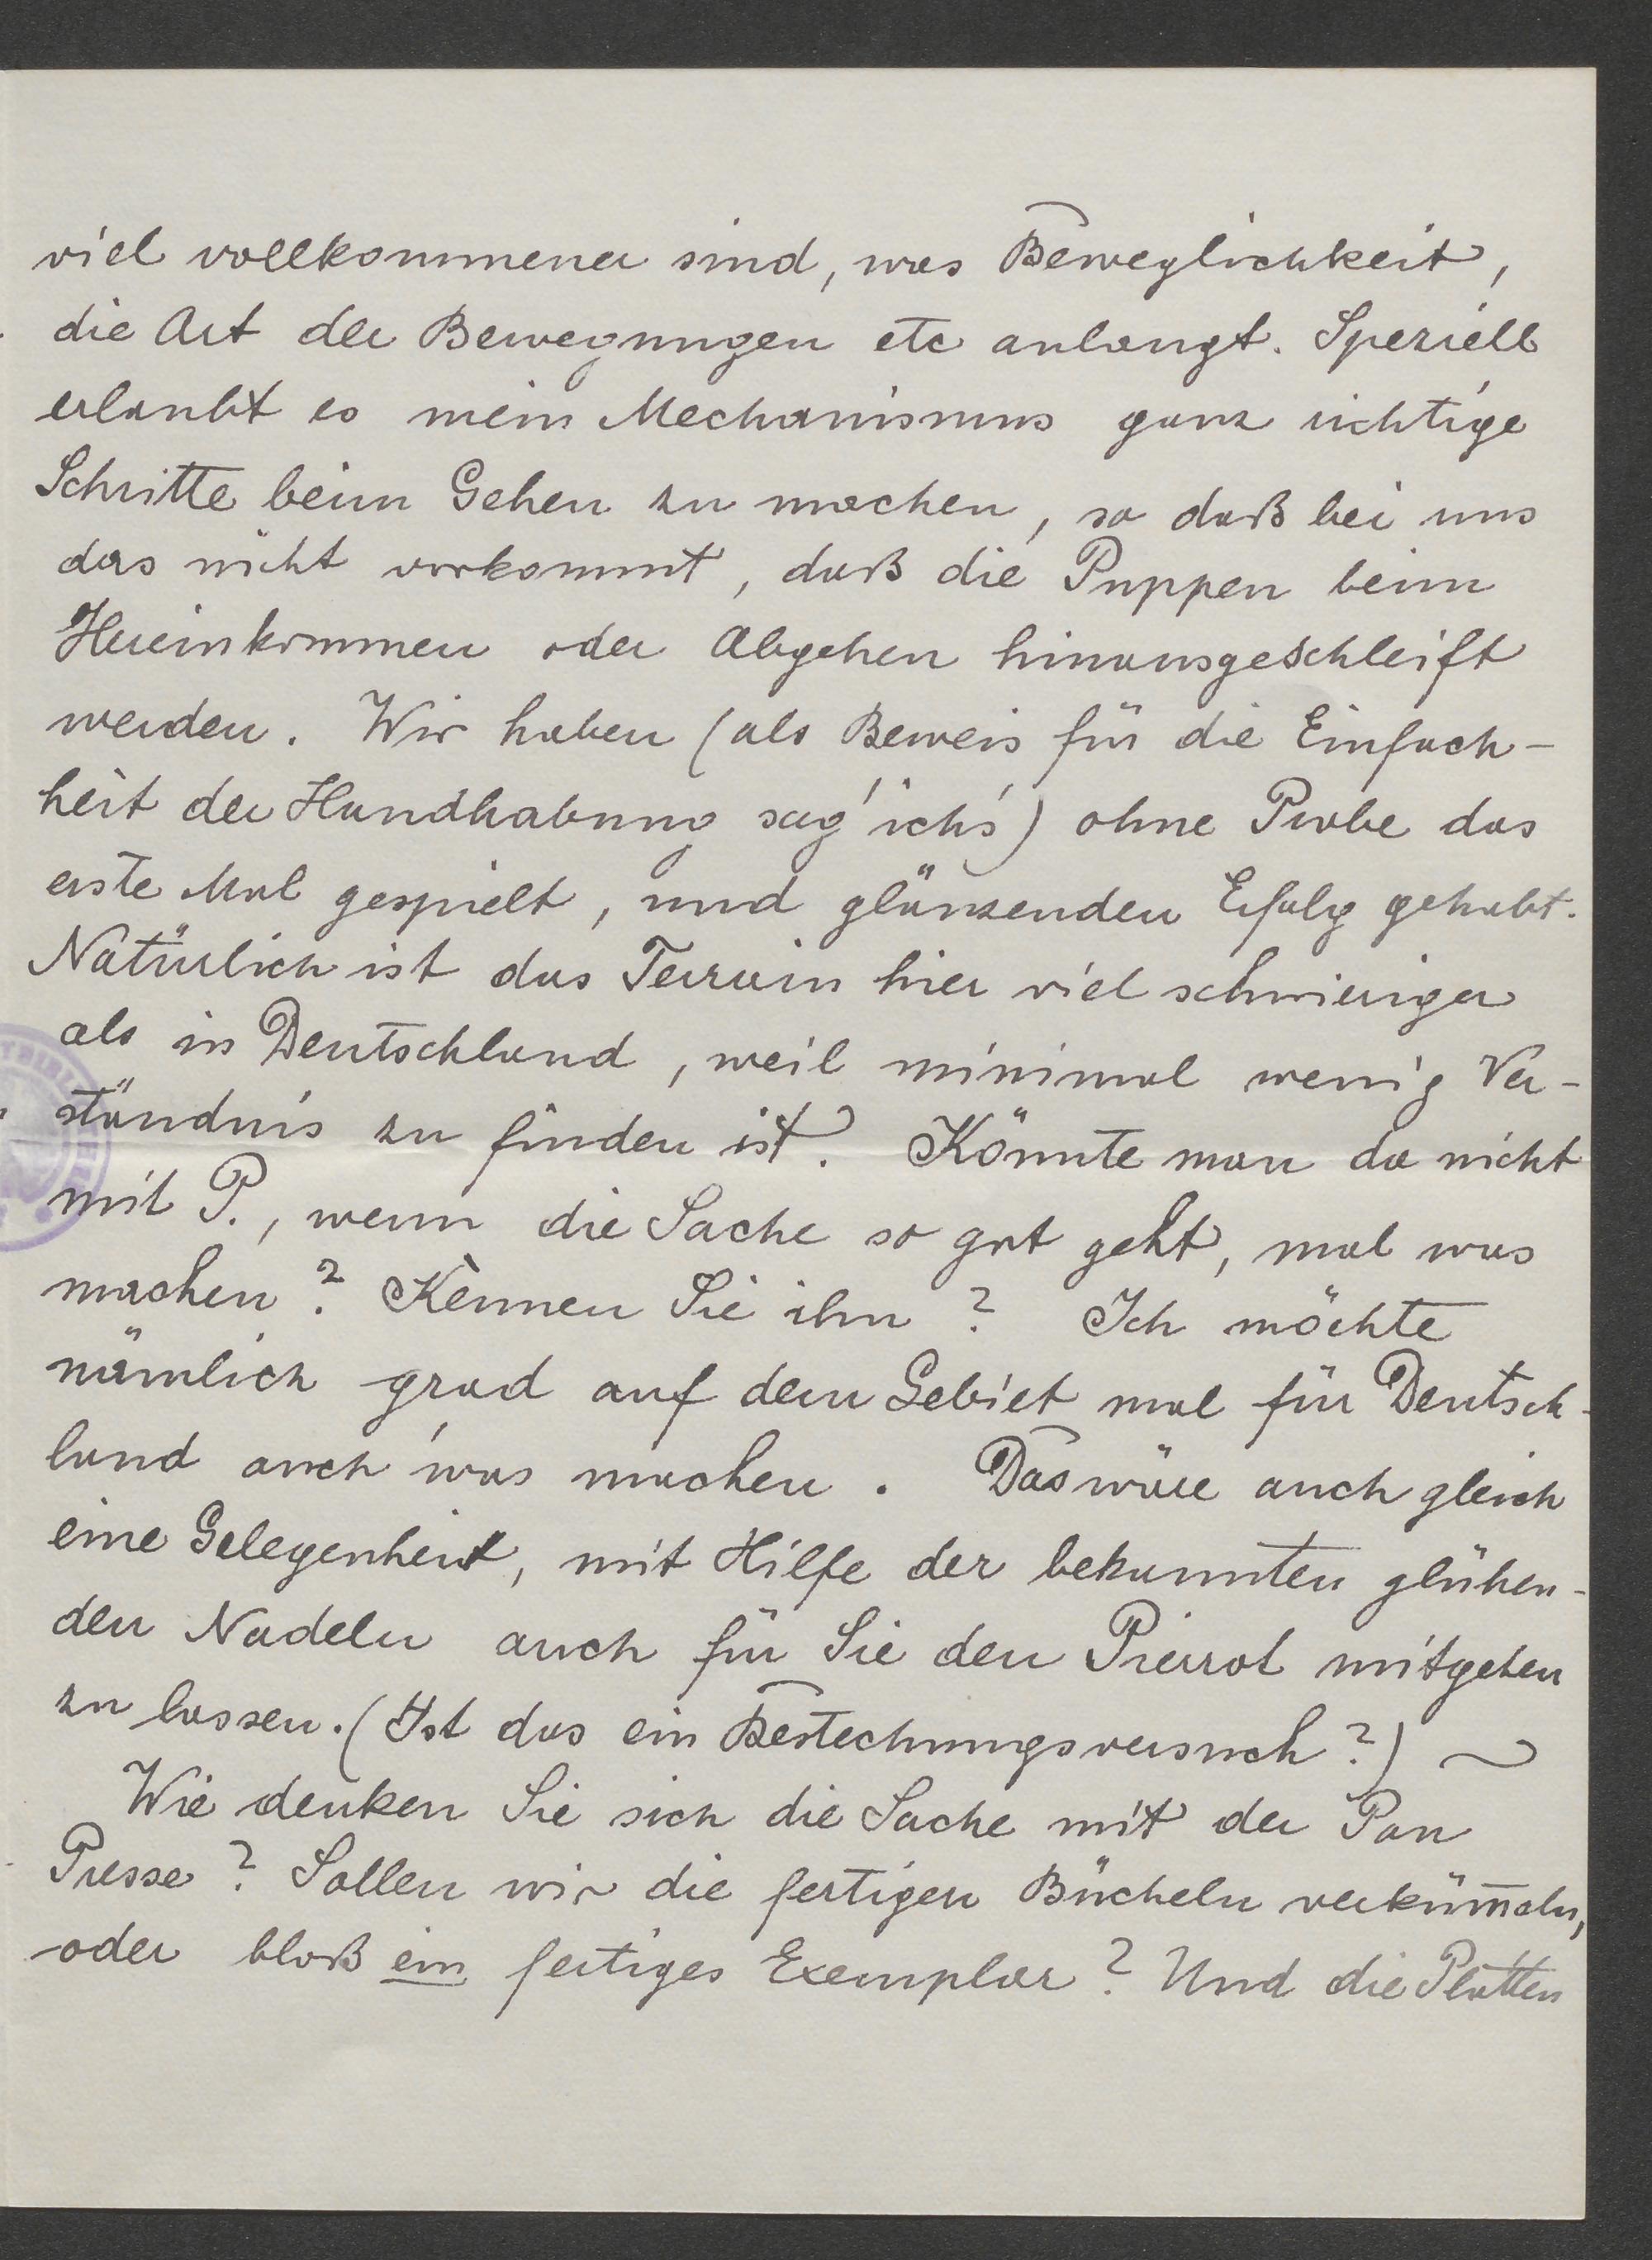 viel vollkommener sind, was Beweglichkeit,
die Art der Bewegungen etc anlangt. Speziell
erlaubt es mein Mechanismus ganz richtige
Schritte beim Gehen zu machen, so daß bei uns
das nicht vorkommt, daß die Puppen beim
Hereinkommen oder Abgehen hinausgeschleift
werden. Wir haben (als Beweis für die Einfach-
heit der Handhabung sag' ich's) ohne Probe das
erste Mal gespielt, und glänzenden Erfolg gehabt.
Natürlich ist das Terrain hier viel schwieriger
als in Deutschland, weil minimal wenig Ver-
ständnis zu finden ist. Könnte man da nicht
mit P., wenn die Sache so gut geht, mal was
machen? Kennen Sie ihn? Ich möchte
nämlich grad auf dem Gebiet mal für Deutsch-
land auch 'was machen. Das wäre auch gleich
eine Gelegenheit, mit Hilfe der bekannten glühen-
den Nadeln auch für Sie den Pierrot mitgehen
zu lassen. (Ist das ein Bestechungsversuch?) ~
Wie denken Sie sich die Sache mit der Pan
Presse? Sollen wir die fertigen Bücheln verküm̅eln,
oder bloß ein fertiges Exemplar? Und die Platten